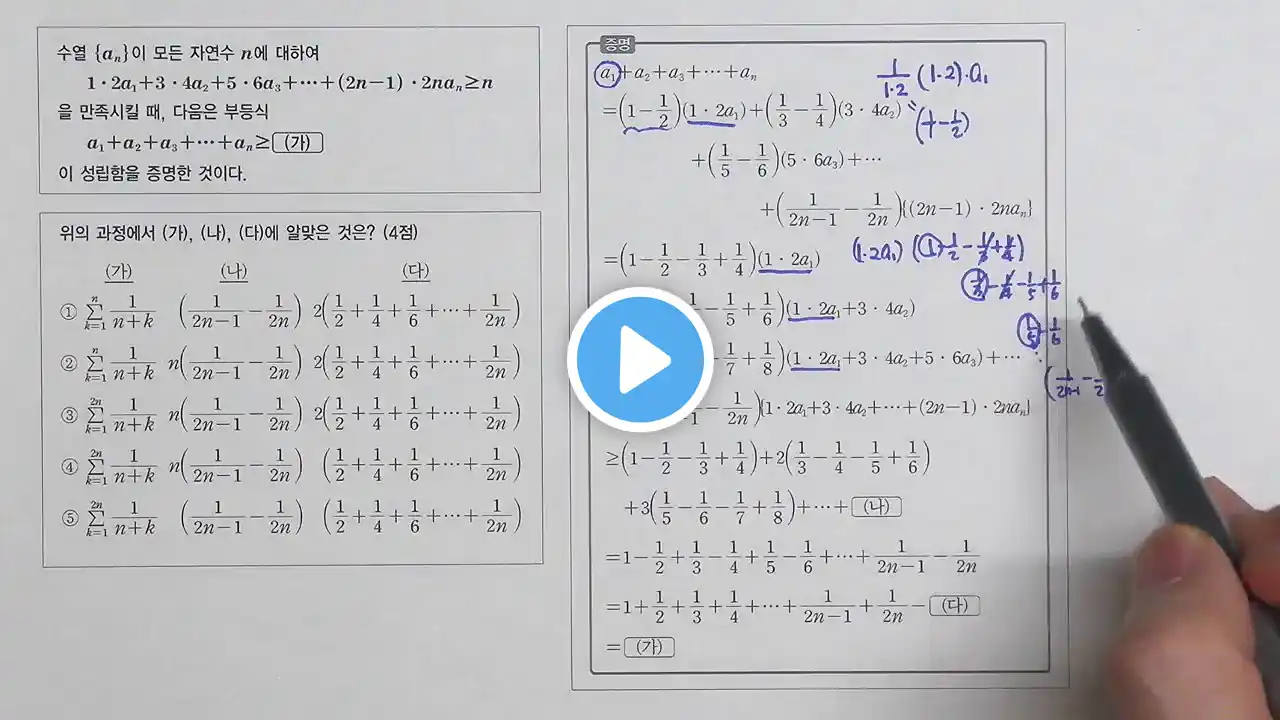 수열 {aₙ}이 모든 자연수 n에 대하여
1·2a₁+3·4a₂+5·6a₃+⋯+(2n−1)·2naₙ≥n
을 만족시킬 때, 다음은 부등식
a₁+a₂+a₃+⋯+aₙ≥ (가)
이 성립함을 증명한 것이다.
위의 과정에서 (가), (나), (다)에 알맞은 것은? (4점)
(가) (나) (다)
① ∑_{k=1}^{n} 1/(n+k) (1/(2n−1) − 1/2n) 2(1/2+1/4+1/6+⋯+1/2n)
② ∑_{k=1}^{n} 1/(n+k) n(1/(2n−1) − 1/2n) 2(1/2+1/4+1/6+⋯+1/2n)
③ ∑_{k=1}^{2n} 1/(n+k) n(1/(2n−1) − 1/2n) 2(1/2+1/4+1/6+⋯+1/2n)
④ ∑_{k=1}^{2n} 1/(n+k) n(1/(2n−1) − 1/2n) (1/2+1/4+1/6+⋯+1/2n)
⑤ ∑_{k=1}^{2n} 1/(n+k) (1/(2n−1) − 1/2n) (1/2+1/4+1/6+⋯+1/2n)
증명
a₁+a₂+a₃+⋯+aₙ
1/(1·2) (1·2)·a₁
=(1−1/2)(1·2a₁)+(1/3−1/4)(3·4a₂)
(1−1/2)
+(1/5−1/6)(5·6a₃)+⋯
+(1/(2n−1) − 1/2n){(2n−1)·2naₙ}
=(1−1/2−1/3+1/4)(1·2a₁)
(1·2a₁) (1−1/2−1/3+1/4)
1/3−1/4−1/5+1/6
−1/5+1/6)(1·2a₁+3·4a₂)
1/5−1/6
1/7+1/8)(1·2a₁+3·4a₂+5·6a₃)+⋯
(1/(2n−1) −
− 1/2n){1·2a₁+3·4a₂+⋯+(2n−1)·2naₙ}
≥(1−1/2−1/3+1/4)+2(1/3−1/4−1/5+1/6)
+3(1/5−1/6−1/7+1/8)+⋯+ (나)
=1−1/2+1/3−1/4+1/5−1/6+⋯+1/(2n−1)−1/2n
=1+1/2+1/3+1/4+⋯+1/(2n−1)+1/2n− (다)
= (가)